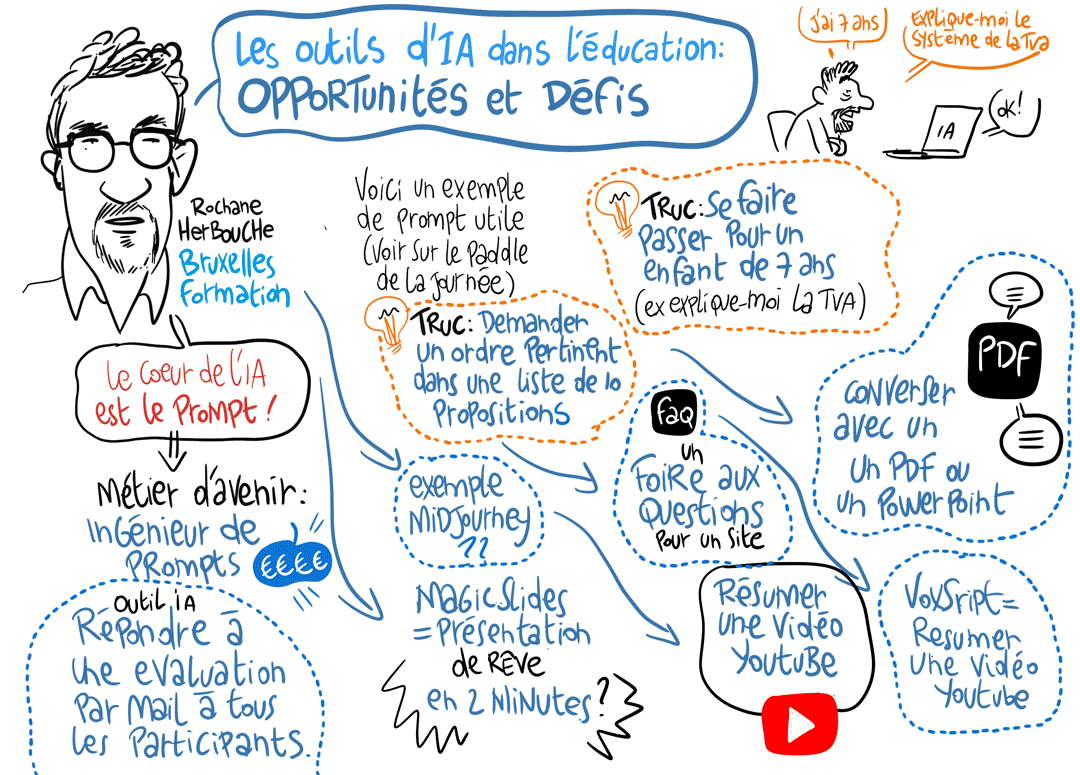 Les outils d'IA dans l'éducation:
OPPORTunités et Défis
j'ai 7 ans
Explique-moi le
système de la TVA
IA
OK!
Rochane
HerBouche
Bruxelles
formation
Voici un exemple
de prompt utile
(Voir sur le Paddle
de la journée)
TRUC: Se faire
passer pour un
enfant de 7 ans
(ex explique-moi la TVA)
TRUC: Demander
un ordre pertinent
dans une liste de 10
propositions
Le coeur de l'IA
est le Prompt!
Métier d'avenir:
Ingénieur de
PRompts
€€€€
outil iA
Répondre à
une evaluation
par mail à tous
les participants.
exemple
MiDJourney
??
MAGicSlides
= Présentation
de RÊVE
en 2 MiNutes?
faq
un
Foire aux
Questions
pour un site
PDF
converser
avec un
un PDF ou
un PowerPoint
Résumer
une vidéo
YouTuBe
VoxSript=
Resumer
une vidéo
Youtube